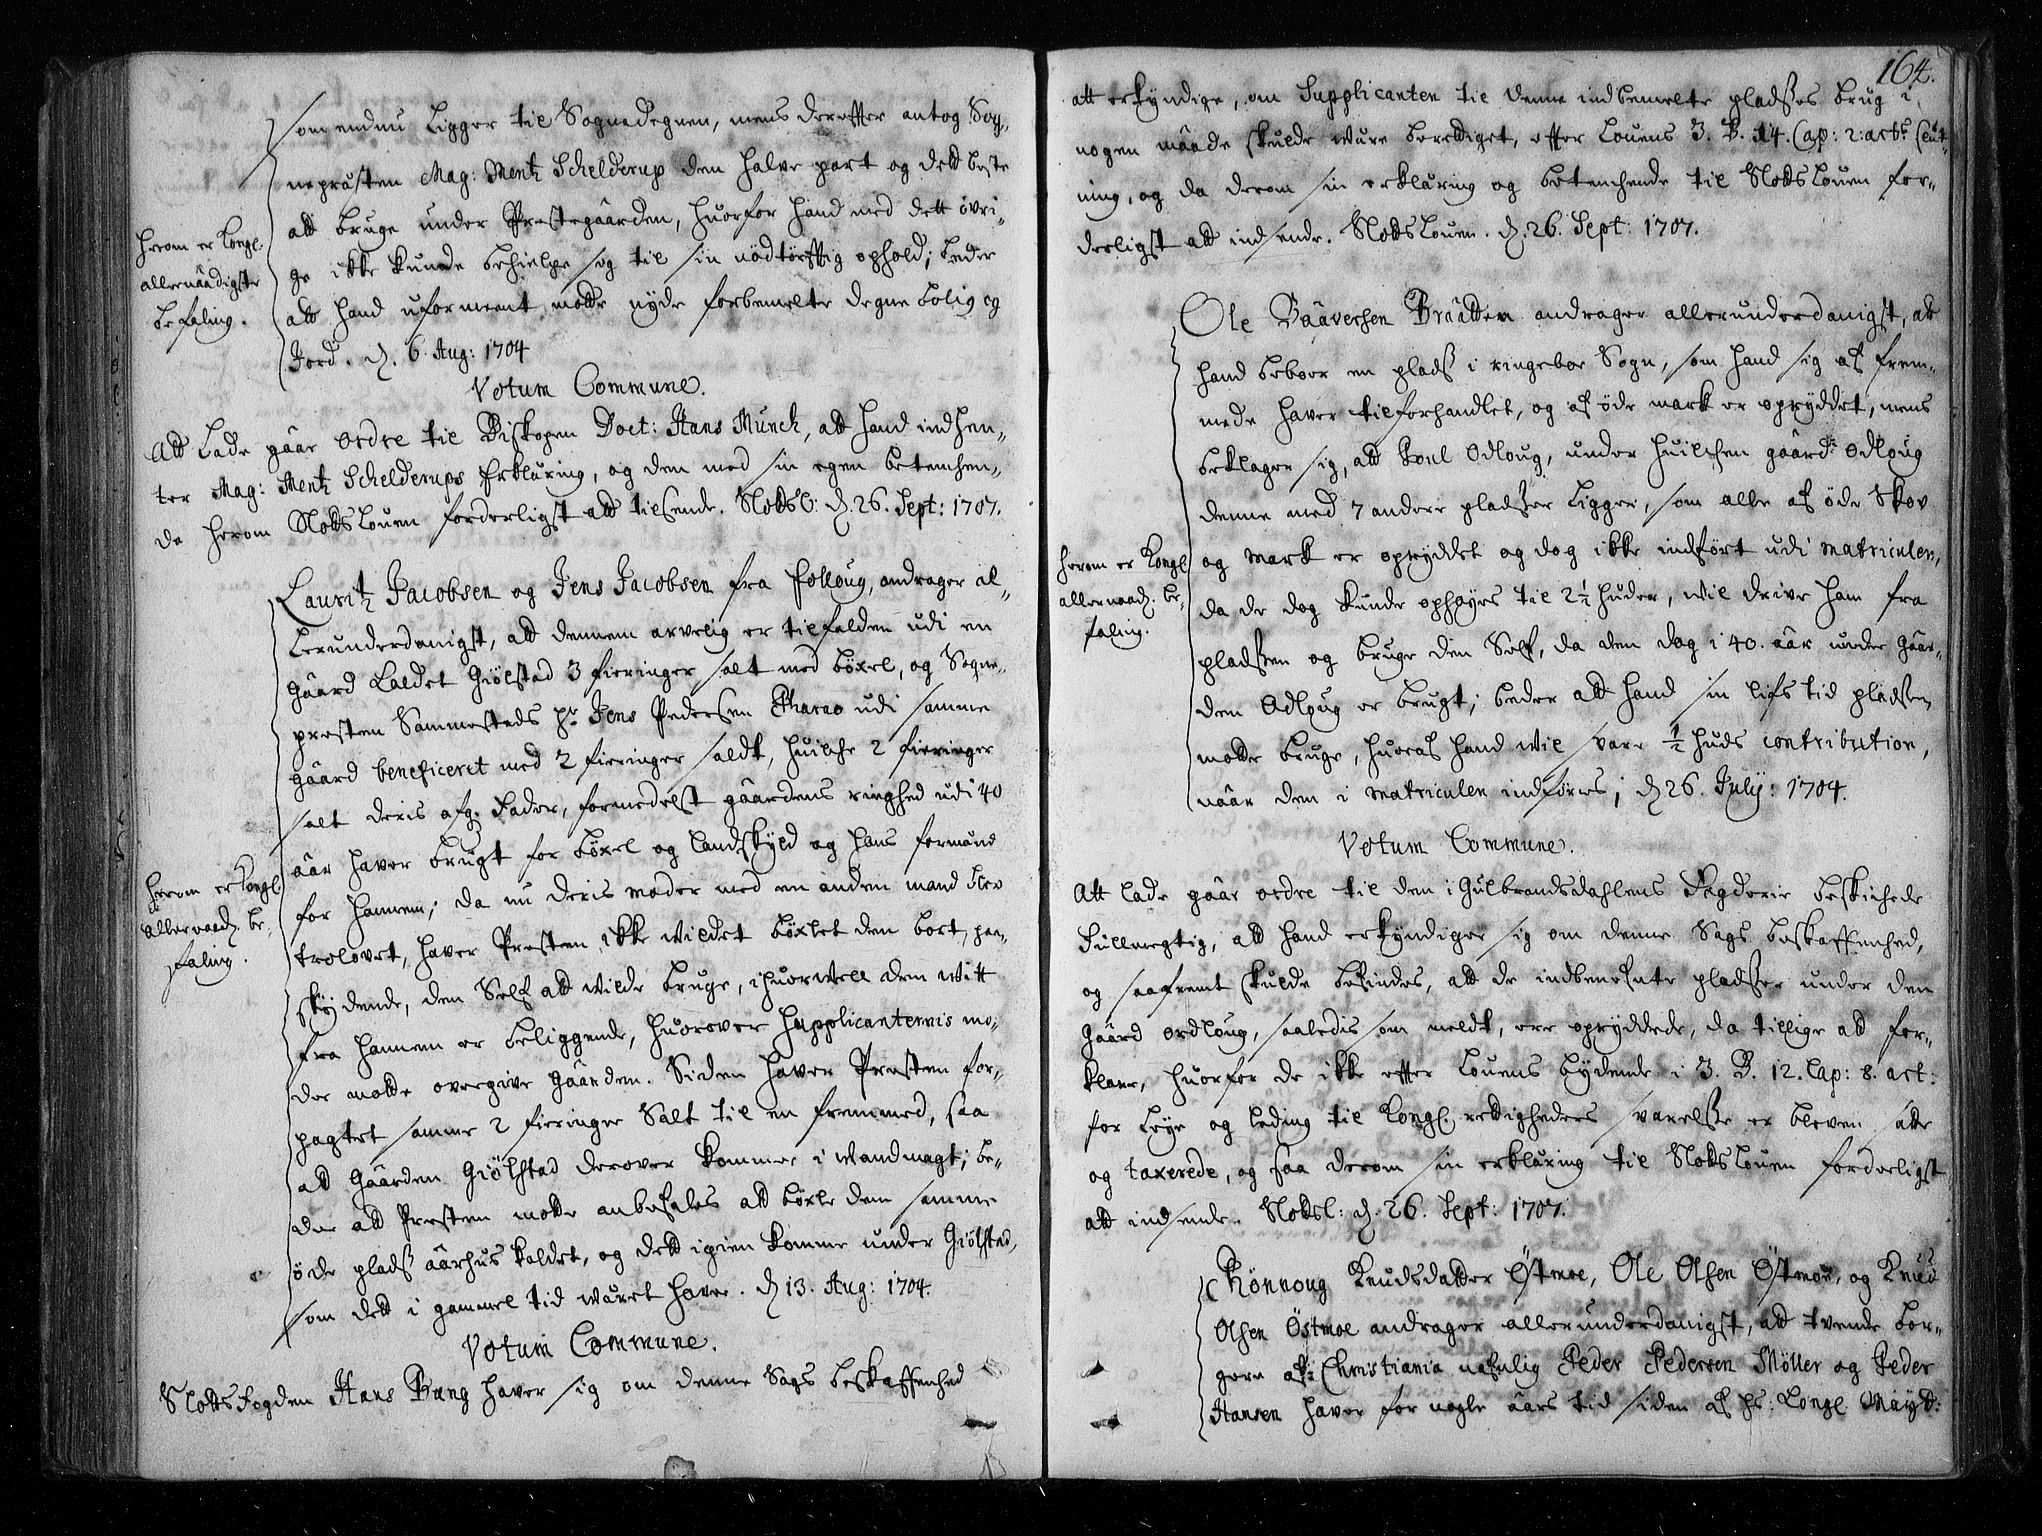 som endnu ligger til Sognedegnen, mens derefter antog Sog-
nepræsten Mag: Mentz Schelderup den halve part og dett beste
att bruge under Prestegaarden, huorfor hand med dett øvri-
ge ikke kunde behielpe sig til sin nødtørftig ophold; beder
att hand uformeent motte nyde forbemelte degne bolig og
Jord. d. 6. Aug: 1704
herom er Kongl.
allernaadigste
befaling.
Votum Commune.
Att lade gaae ordre til Biskopen Doct: Hans Munch, att hand indhen-
ter Mag: Mentz Schelderups Erklæring, og den med sin egen betenchen-
de herom Slotsloven forderligst att tilsende. Slotsl: d. 26. Sept: 1707.
Lauritz Jacobsen og Jens Jacobsen fra Folloug, andrager al-
lerunderdanigst, att dennem arvelig er tilfalden udi en
Gaard kaldet Giølstad 3 fieringer salt med bøxel, og Sogne-
presten Sammesteds hr Jens Pedersen Pharao udi samme
gaard beneficeret med 2 fieringer saldt, huilche 2 fieringer
salt deris afg. Fader, formedelst gaardens ringhed udi 40
aar haver brugt for bøxel og landskyld og hans formand
for hannem; da nu deris moder med en anden mand blev
trolovet, haver Presten ikke vildet bøxlet den bort, paa-
skydende, den Self att vilde bruge, ihuorvell den vitt
fra hannem er beliggende, huorover Supplicanternis mo-
der motte overgive Gaarden. Siden haver Presten for-
pagtet samme 2 fieringer Salt til en fremmed, saa
att Gaarden Giølstad derover kommer i Vandmagt; be-
der att Presten motte anbefales att bøxle dem samme
øde plads Aarhus kaldet, og dett igien komme under Giølstad,
som dett i gammel tid været haver. d 13. Aug: 1704.
herom er Kongl.
allernaad. be-
faling.
Votum Commune.
Slotsfogden Hans Bang haver sig om denne Sags beskaffenhed
164.
att erkyndige, om Supplicanten til denne indbemelte pladses brug i
nogen maade skulde være berettiget, efter Lovens 3. B. 14. Cap: 2: art: Slut-
ning, og da derom sin erklæring og betenchende til Slotsloven for-
derligst att indsende. Slotsloven. d. 26. Sept: 1707.
Ole Paaversen Braatten andrager allerunderdanigst, at
hand beboer en plads i ringeboe Sogn, som hand sig af frem-
mede haver tilforhandlet, og af øde mark er opryddet, mens
beklager sig, att Poul Odloug, under huilchen gaard: Odloug
denne med 7 andere pladser ligger, som alle af øde Skov
og mark er opryddet og dog ikke indført udi matriculen,
da de dog kunde ophøyes til 2½ huder, vil drive ham fra
pladsen og bruge den Self, da den dog i 40. aar under Gaar-
den Odloug er brugt; beder att hand sin lifs tid pladsen
motte bruge, huoraf hand vil svare ½ huds contribution,
naar den i matriculen indføres; d 26. July: 1704.
herom er Kongl.
allernaad. be-
faling.
Votum Commune.
Att lade gaae ordre til den i Gulbrandsdahlens Fogderie beskichede
Fuldmegtig, att hand erkyndiger sig om denne Sags beskaffenhed,
og saafremt skulde befindes, att de indbenefnte pladser under den
Gaard ordloug, saaledis som meldt, ere opryddede, da tillige at for-
klare, huorfor de ikke efter Lovens bydende i 3. B. 12. Cap: 8. art:
for leye og leding til Kongl. rettigheders svarelse er bleven satte
og taxerede, og saa derom sin erklæring til Slotsloven forderligst
att indsende. Slotsl: d. 26. Sept: 1707.
Rönnoug Knudsdatter Østmoe, Ole Olsen Østmoe, og Knud
Olsen Østmoe andrager allerunderdanigst, att tvende bor-
gere af Christiania nafnlig Peder Pedersen Møller og Peder
Hansen haver for nogle aars tid siden af hs: Kongl. Mayst: